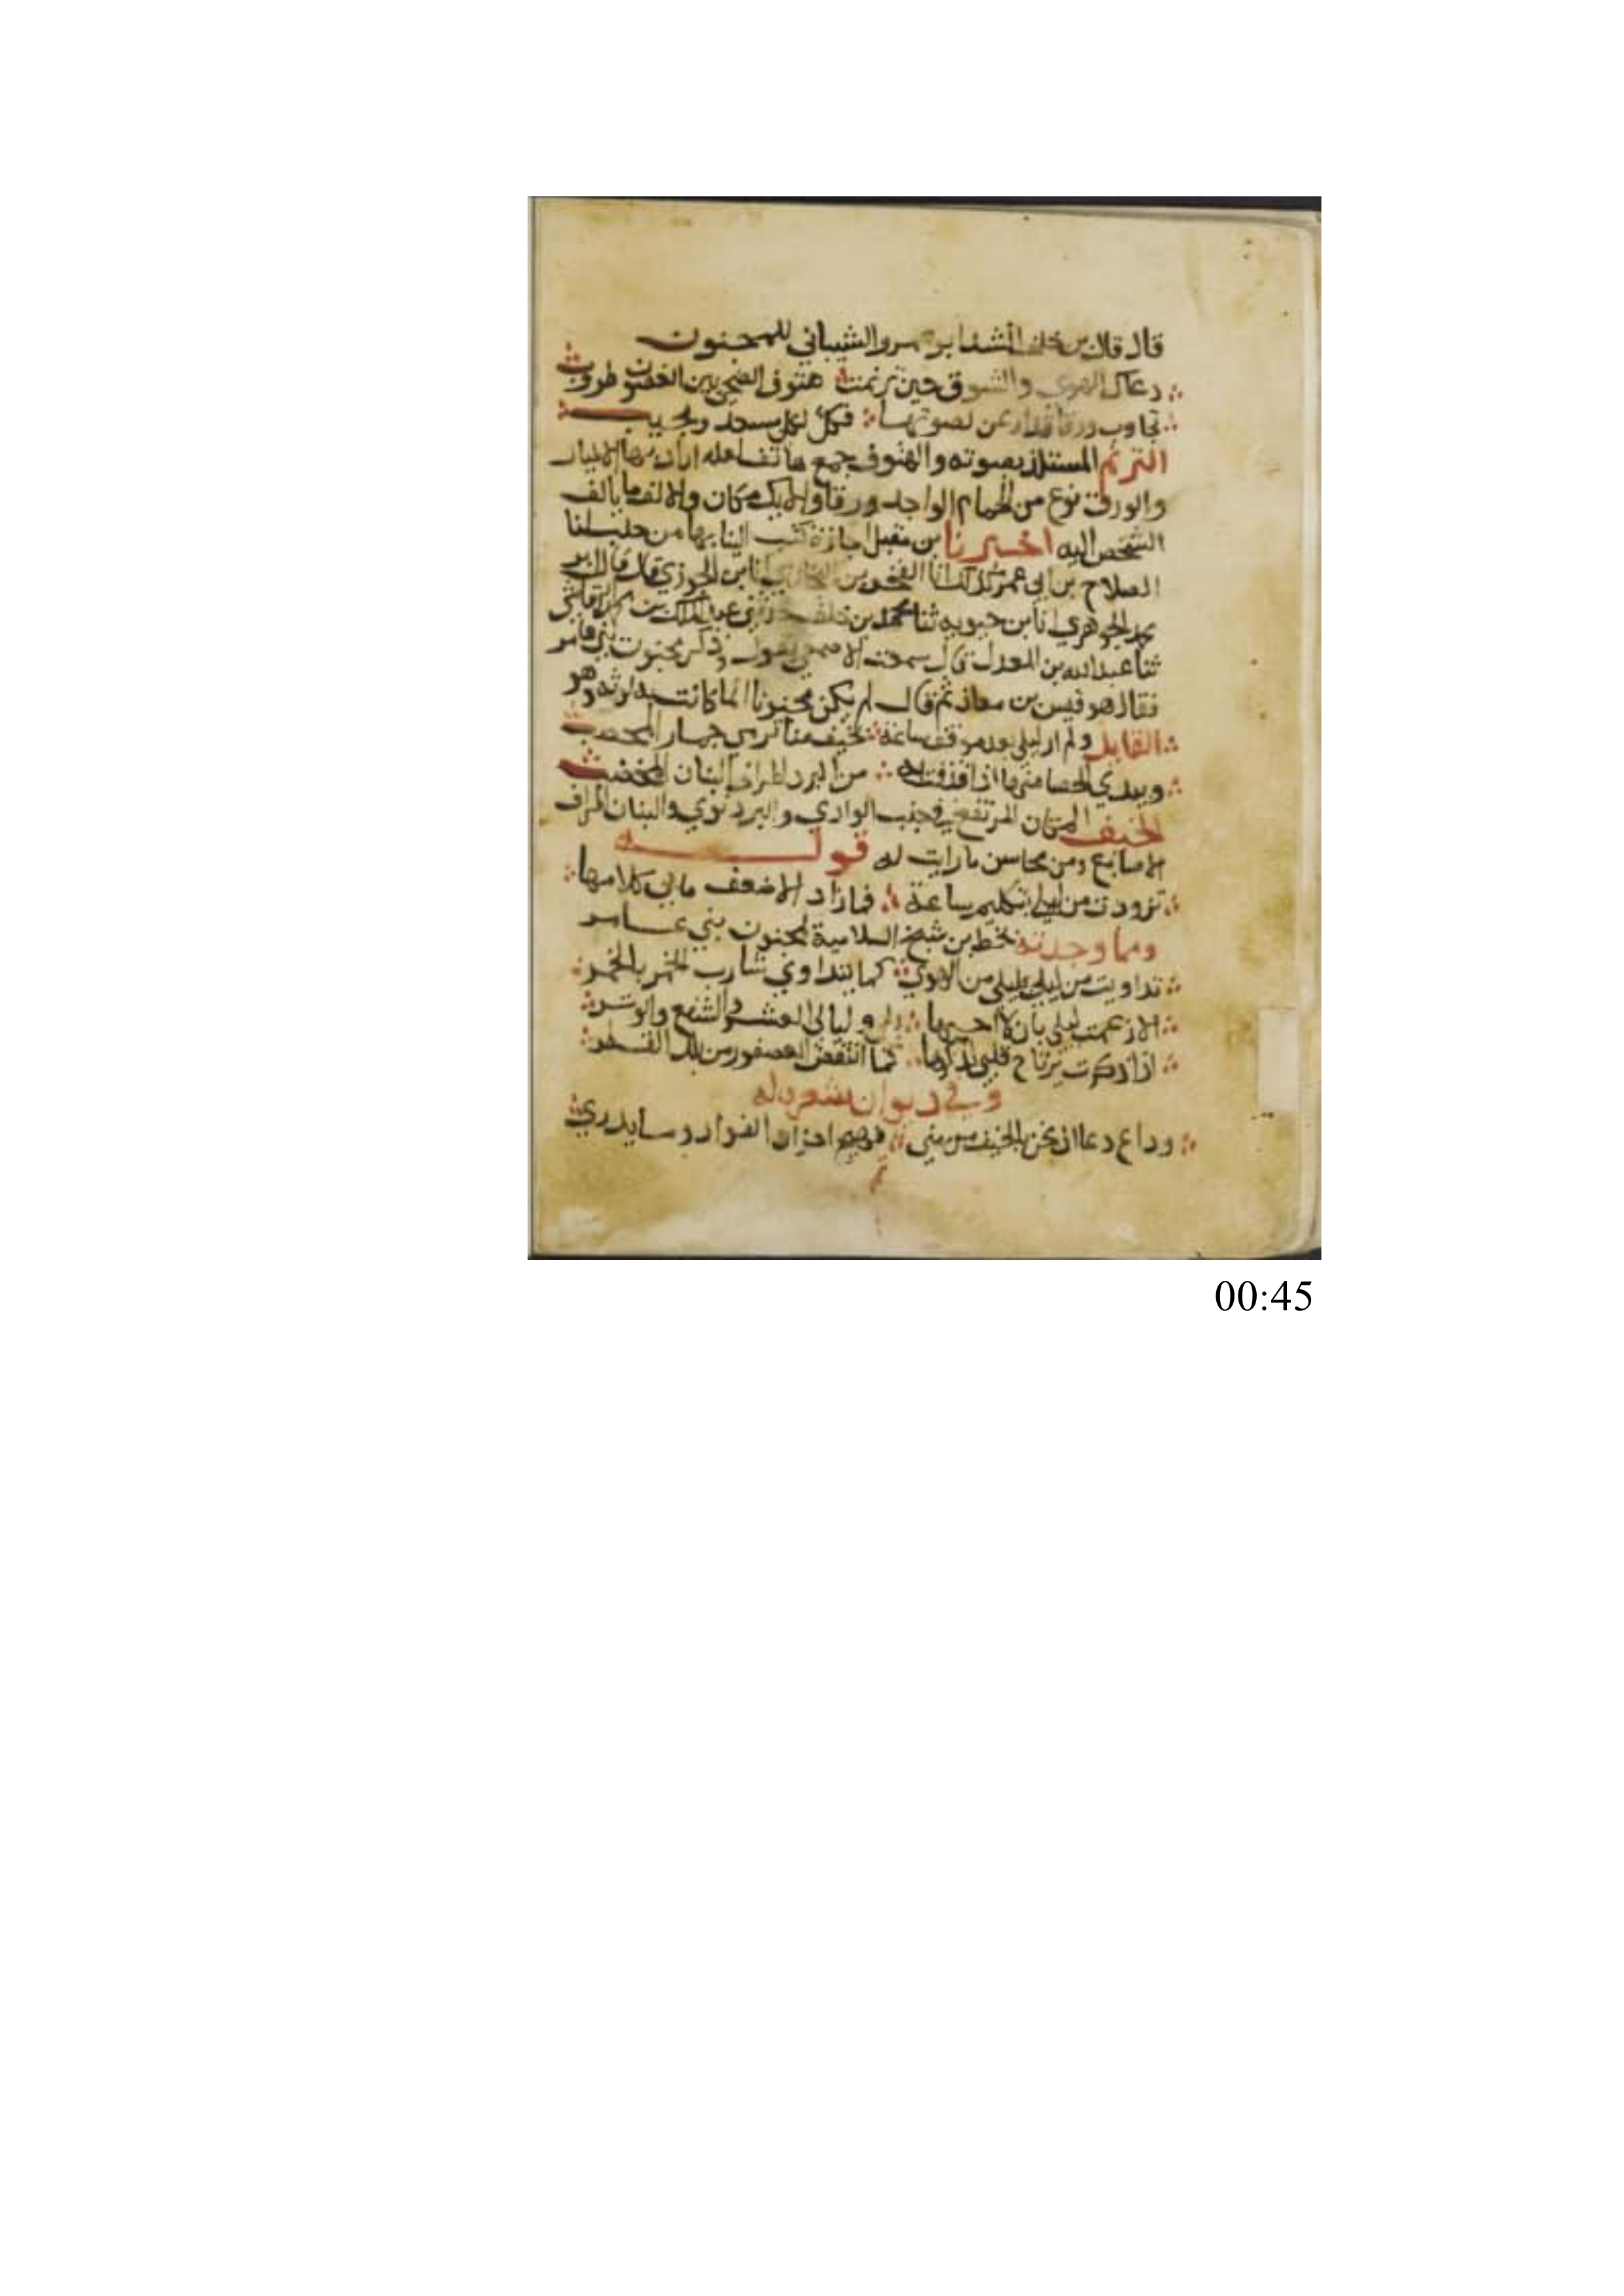 قال قال بن خلف انشدنا ابو عمرو الشيباني للمجنون
دعاك الهوي والشوق حين ترنمت هتوف الضحي بين الغصون طروب
تجاوب ورقا قد ارعن لصوتها فكل لكل مسعد ومجيب
الترنم المستلذ بصوته والهتوف جمع هاتف
والورق نوع من الحمام الواحد ورقا والايك مكان والالف ما يالف
الشخص اليه اخبرنا بن مقبل اجازة كتب الينا بها من حلب لنا
الصلاح بن ابي عمر انا الفخر بن البخاري انا بن الجوزي قال قال
الجوهري انا بن حيويه ثنا محمد بن خلف حدثني عبد الملك بن محمد الرقاشي
ثنا عبد الله بن المعدل قال سمعت الاصمعي يقول وذكر مجنون بني عامر
فقال هو قيس بن معاذ ثم قال لم يكن مجنونا انما كانت به لوثه وهو
القايل ولم ار ليلي بعد موقف ساعة بخيف منا ترمي جمار المحصب
ويبدي الحصا منها اذا قذفت به من البرد اطراف البنان المخضب
الخيف المكان المرتفع في جنب الوادي والبرد ثوب والبنان اطراف
الاصابع ومن محاسن ما رايت له قوله
تزودت من ليلي بتكليم ساعة فما زاد الا ضعف ما بي كلامها
ومما وجدته بخط بن شيخ السلامية لمجنون بني عامر
تداويت من ليلي بليلي من الهوي كما يتداوي شارب الخمر بالخمر
الا زعمت ليلي بان لا احبها بلي وليالي العشر والشفع والوتر
اذا ذكرت يرتاح قلبي لذكرها كما انتفض العصفور من بلل القطر
وفي ديوان شعره له
وداع دعا اذ نحن بالخيف من مني فهيج احزان الفواد وما يدري
00:45